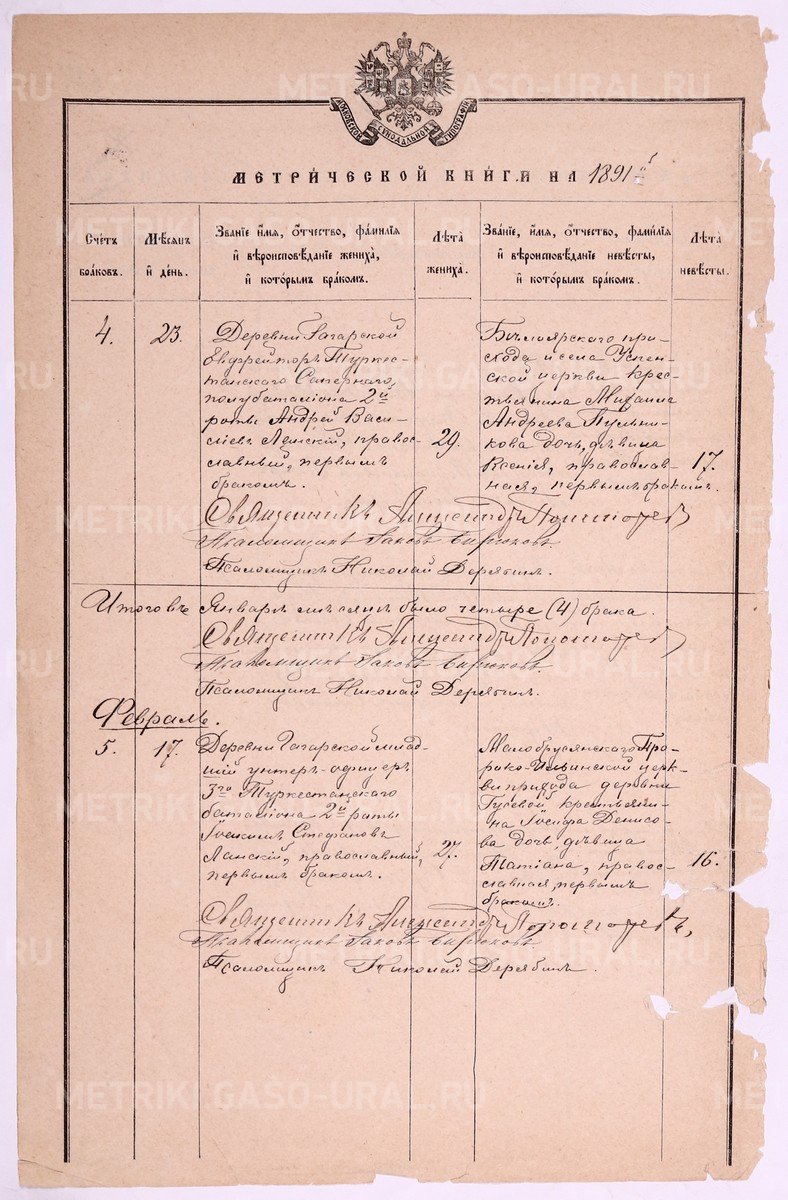 МОСКОВСКОЙ СѴНОДАЛЬНОЙ ТИПОГРАФІИ
МЕТРИЧЕСКОЙ КНИГИ НА 1891й
Счетъ браковъ.
Мѣсяцъ и день.
Званіе, имя, отчество, фамилія и вѣроисповѣданіе жениха, и которымъ бракомъ.
Лѣта жениха.
Званіе, имя, отчество, фамилія и вѣроисповѣданіе невѣсты, и которымъ бракомъ.
Лѣта невѣсты.
4.
23.
Деревни Гагарской
Ефрейторъ Туркес-
танскаго Сапернаго
полубаталіона 2й
роты Андрей Васи-
ліевъ Ланскій, право-
славный, первымъ
бракомъ.
29.
Бѣлоярскаго при-
хода и села Успен-
ской церкви крес-
тьянина Михаила
Андреева Пульни-
кова дочь, дѣвица
Ксенія, православ-
ная, первымъ бракомъ.
17.
Священникъ Александръ
Псаломщикъ Іаковъ Бирюковъ.
Псаломщикъ Николай Дерябинъ.
Итого въ Январѣ мѣсяцѣ было четыре (4) брака.
Священникъ Александръ
Псаломщикъ Іаковъ Бирюковъ.
Псаломщикъ Николай Дерябинъ.
Февраль.
5.
17.
Деревни Гагарской млад-
шій унтеръ-офицеръ
3го Туркестанскаго
баталіона 2й роты
Іоакимъ Стефановъ
Ланскій, православный,
первымъ бракомъ.
27.
Малобрусянскаго Про-
роко-Ильинской церк-
ви прихода деревни
Гусевой крестьяни-
на Іосифа Денисо-
ва дочь, дѣвица
Татіана, право-
славная, первымъ
бракомъ.
16.
Священникъ Александръ
Псаломщикъ Іаковъ Бирюковъ.
Псаломщикъ Николай Дерябинъ.
METRIKI.GASO-URAL.RU